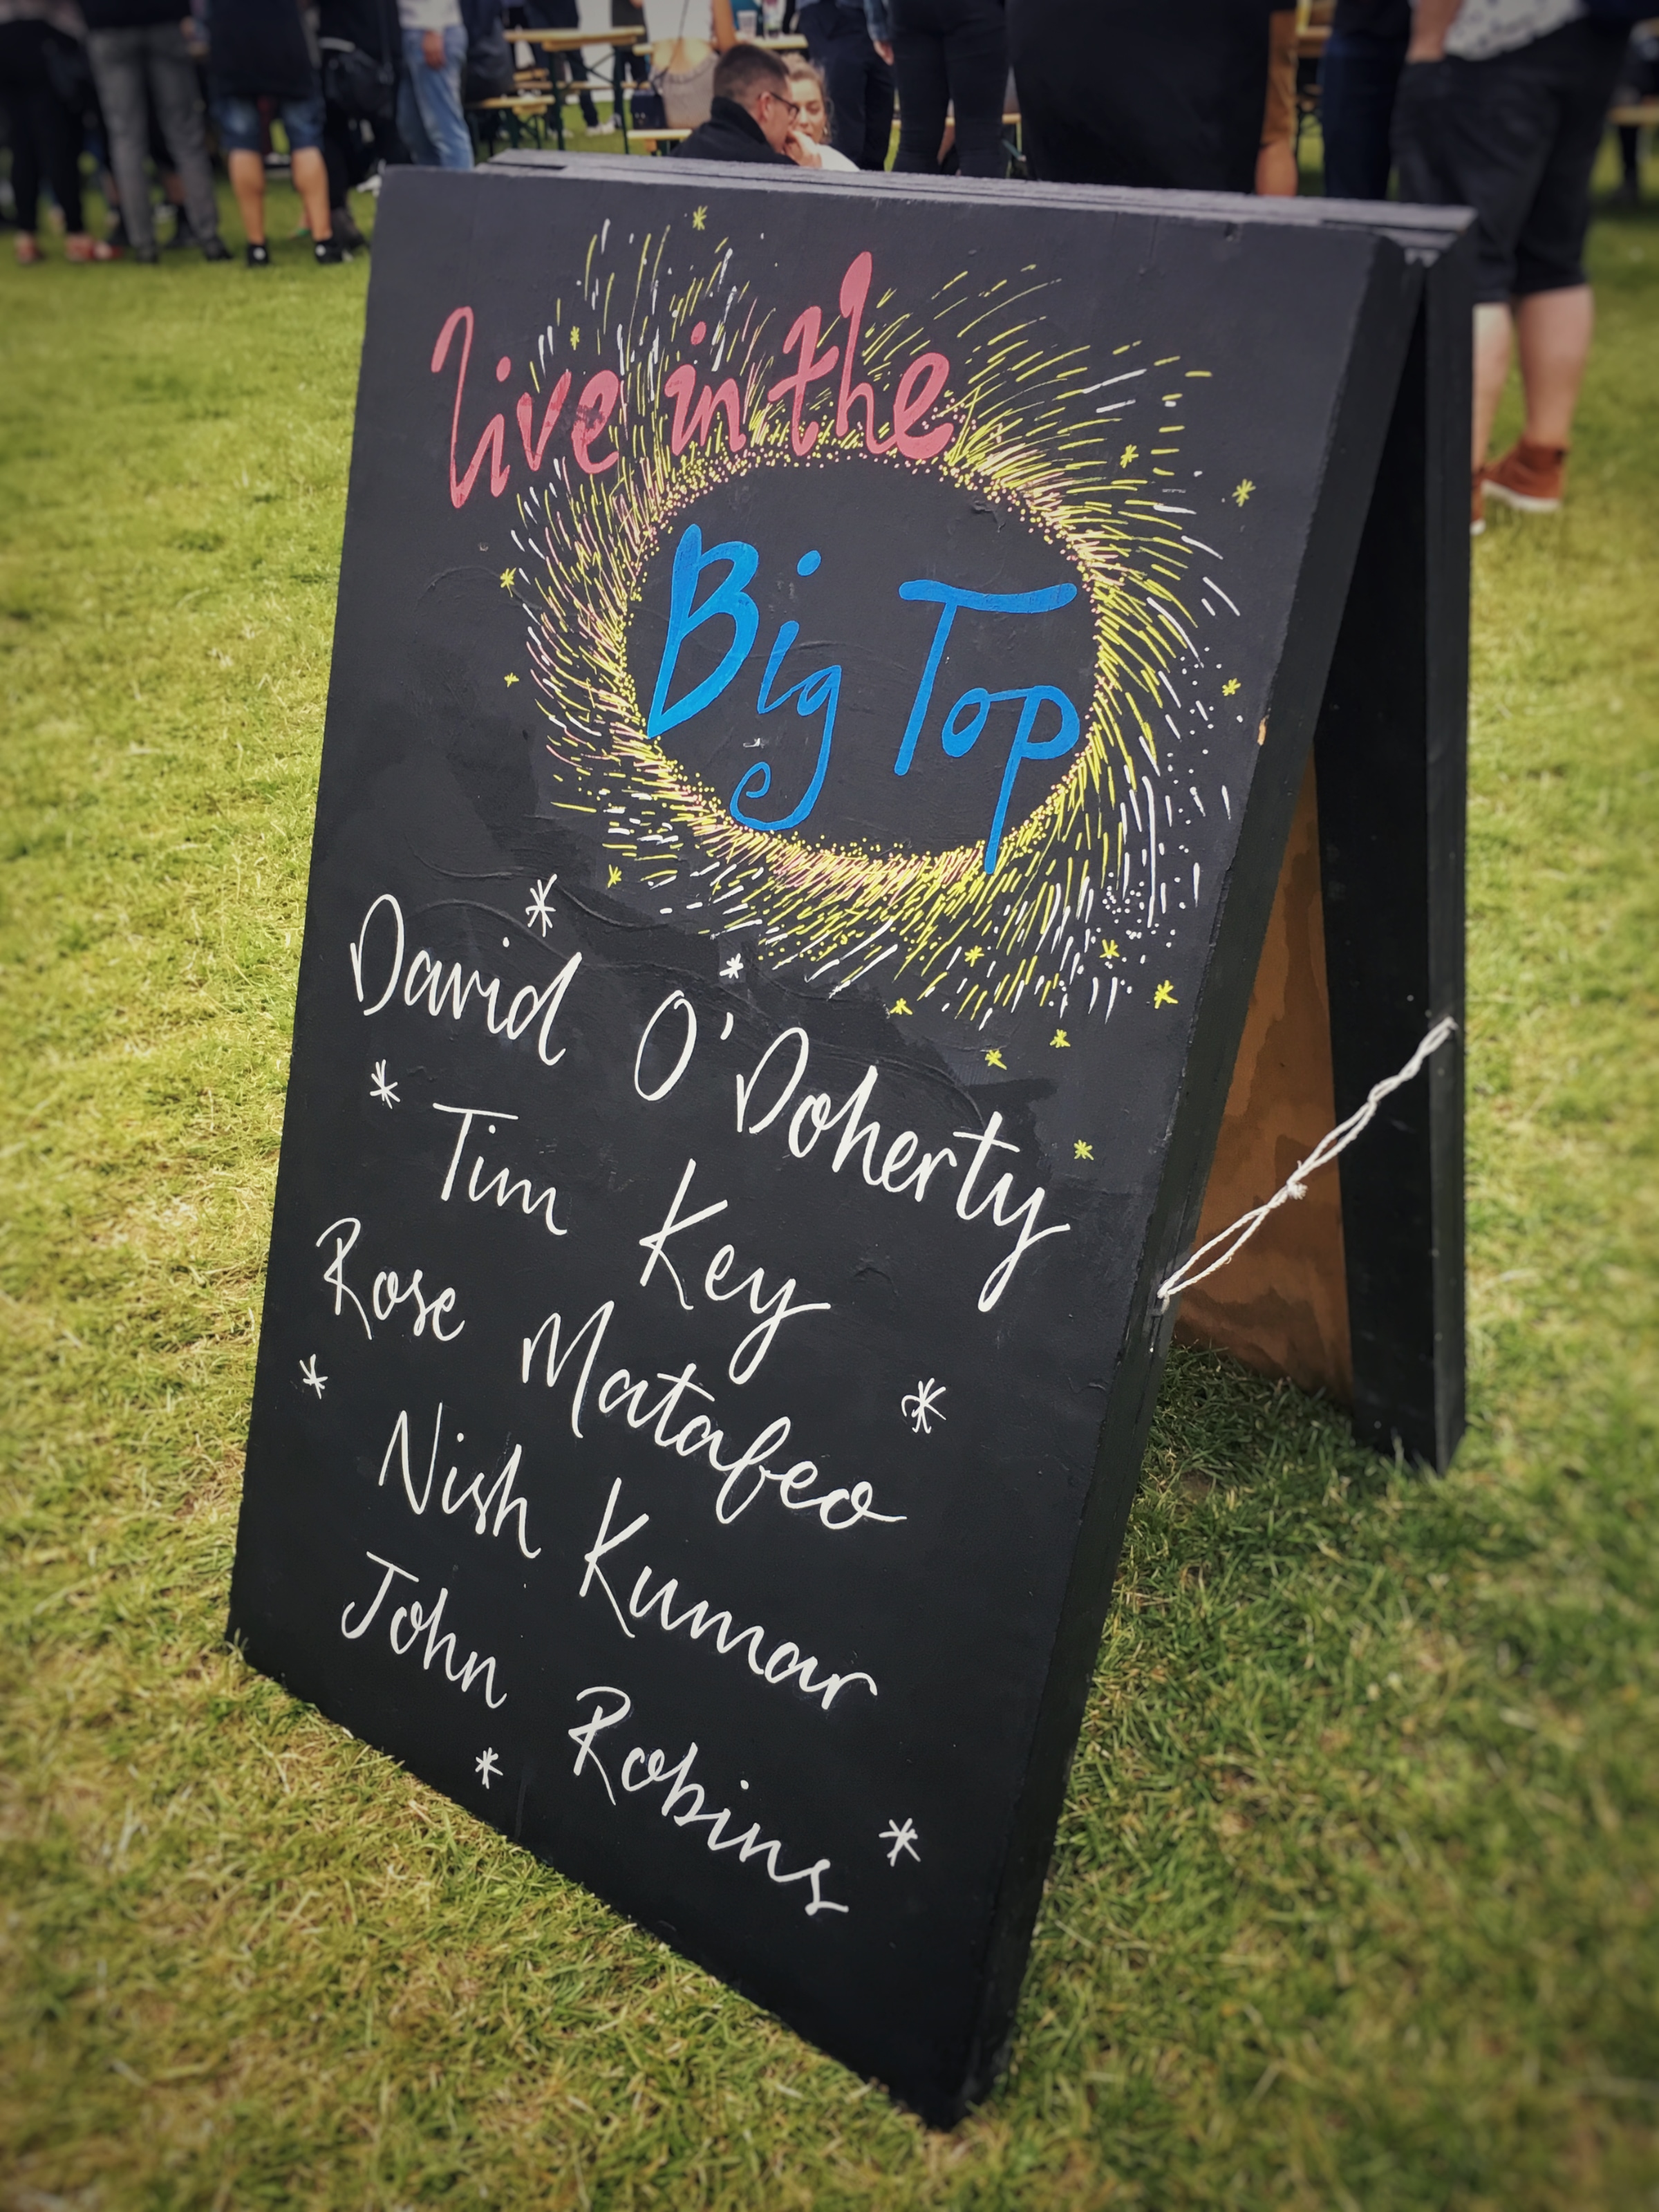 Live in the
Big Top
David O'Doherty
Tim Key
Rose Matafeo
Nish Kumar
John Robins